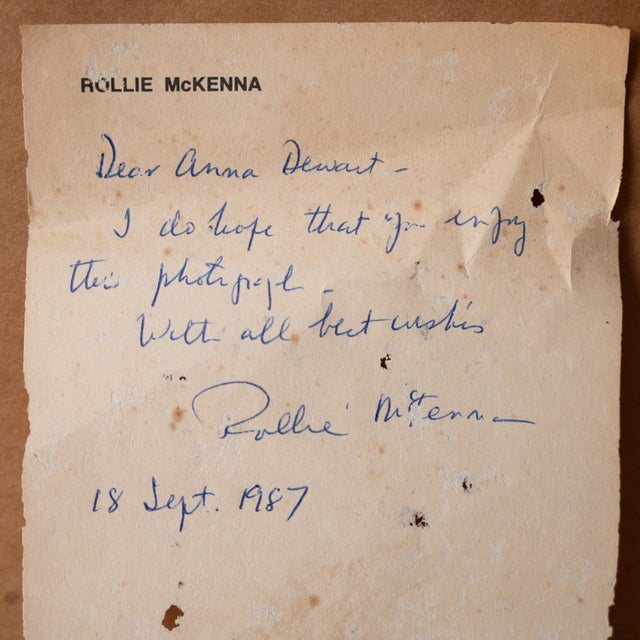 ROLLIE McKENNA
Dear Anna Dewart –
I do hope that you enjoy
this photograph –
With all best wishes
Rollie McKenna
18 Sept. 1987